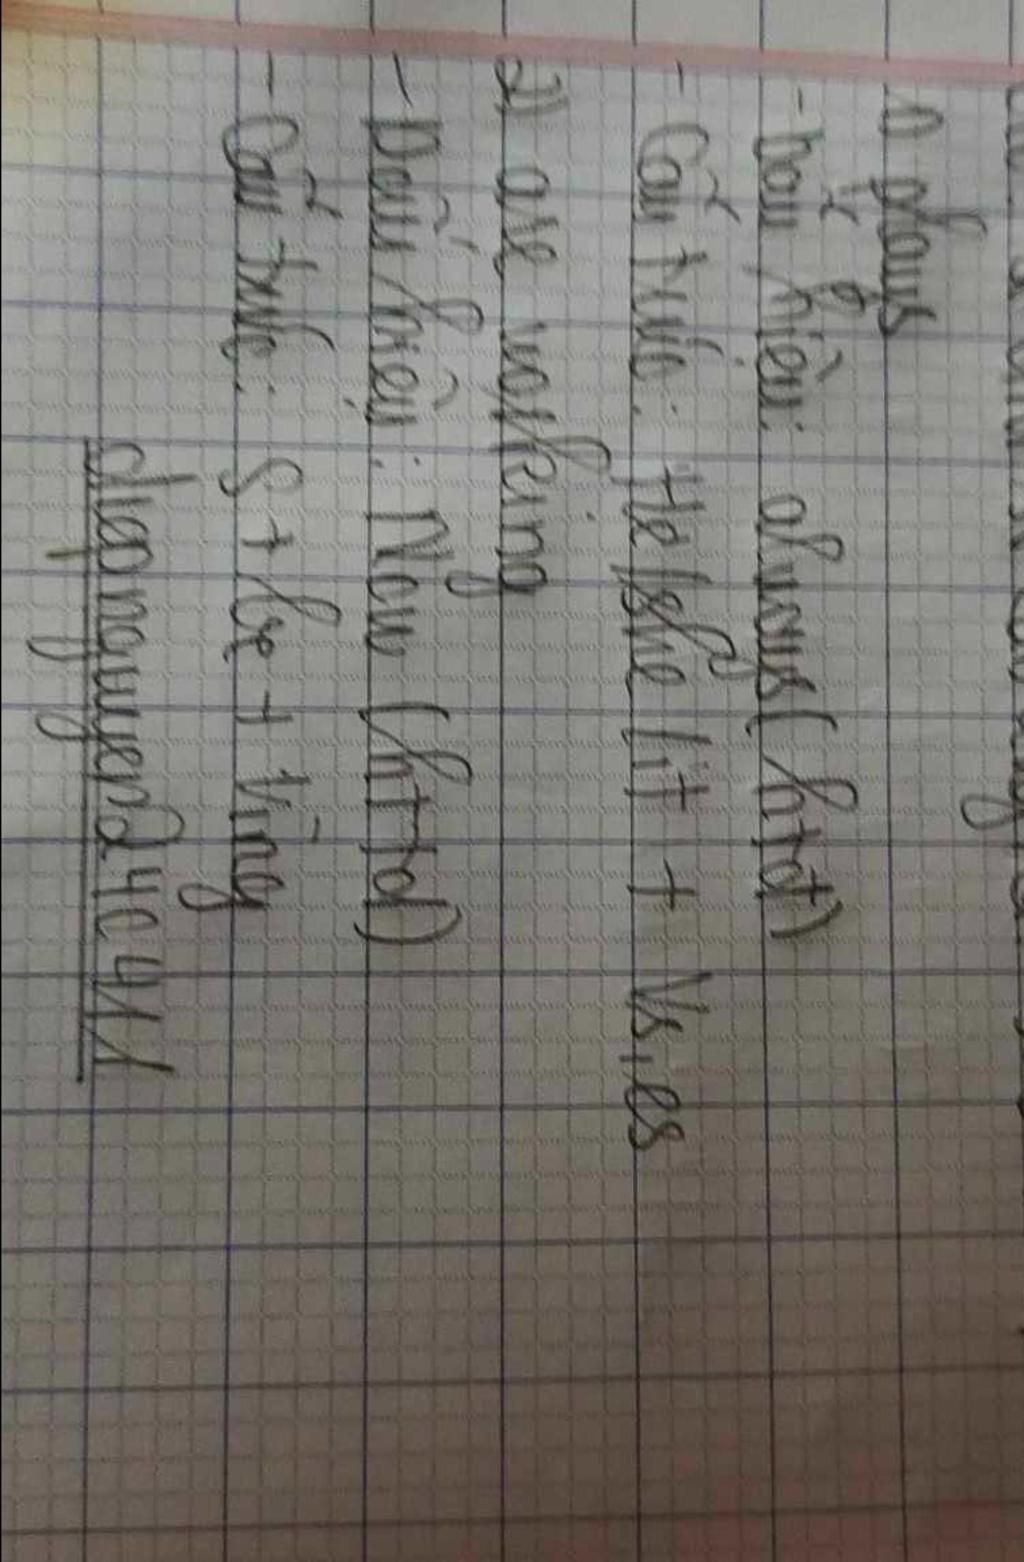 1) plays
- Dấu hiệu: always (htđ)
- Cấu trúc: He/she/it + Vs,es
2) are working
- Dấu hiệu: Now (httd)
- Cấu trúc: S + be + Ving
diepnguyend24c411